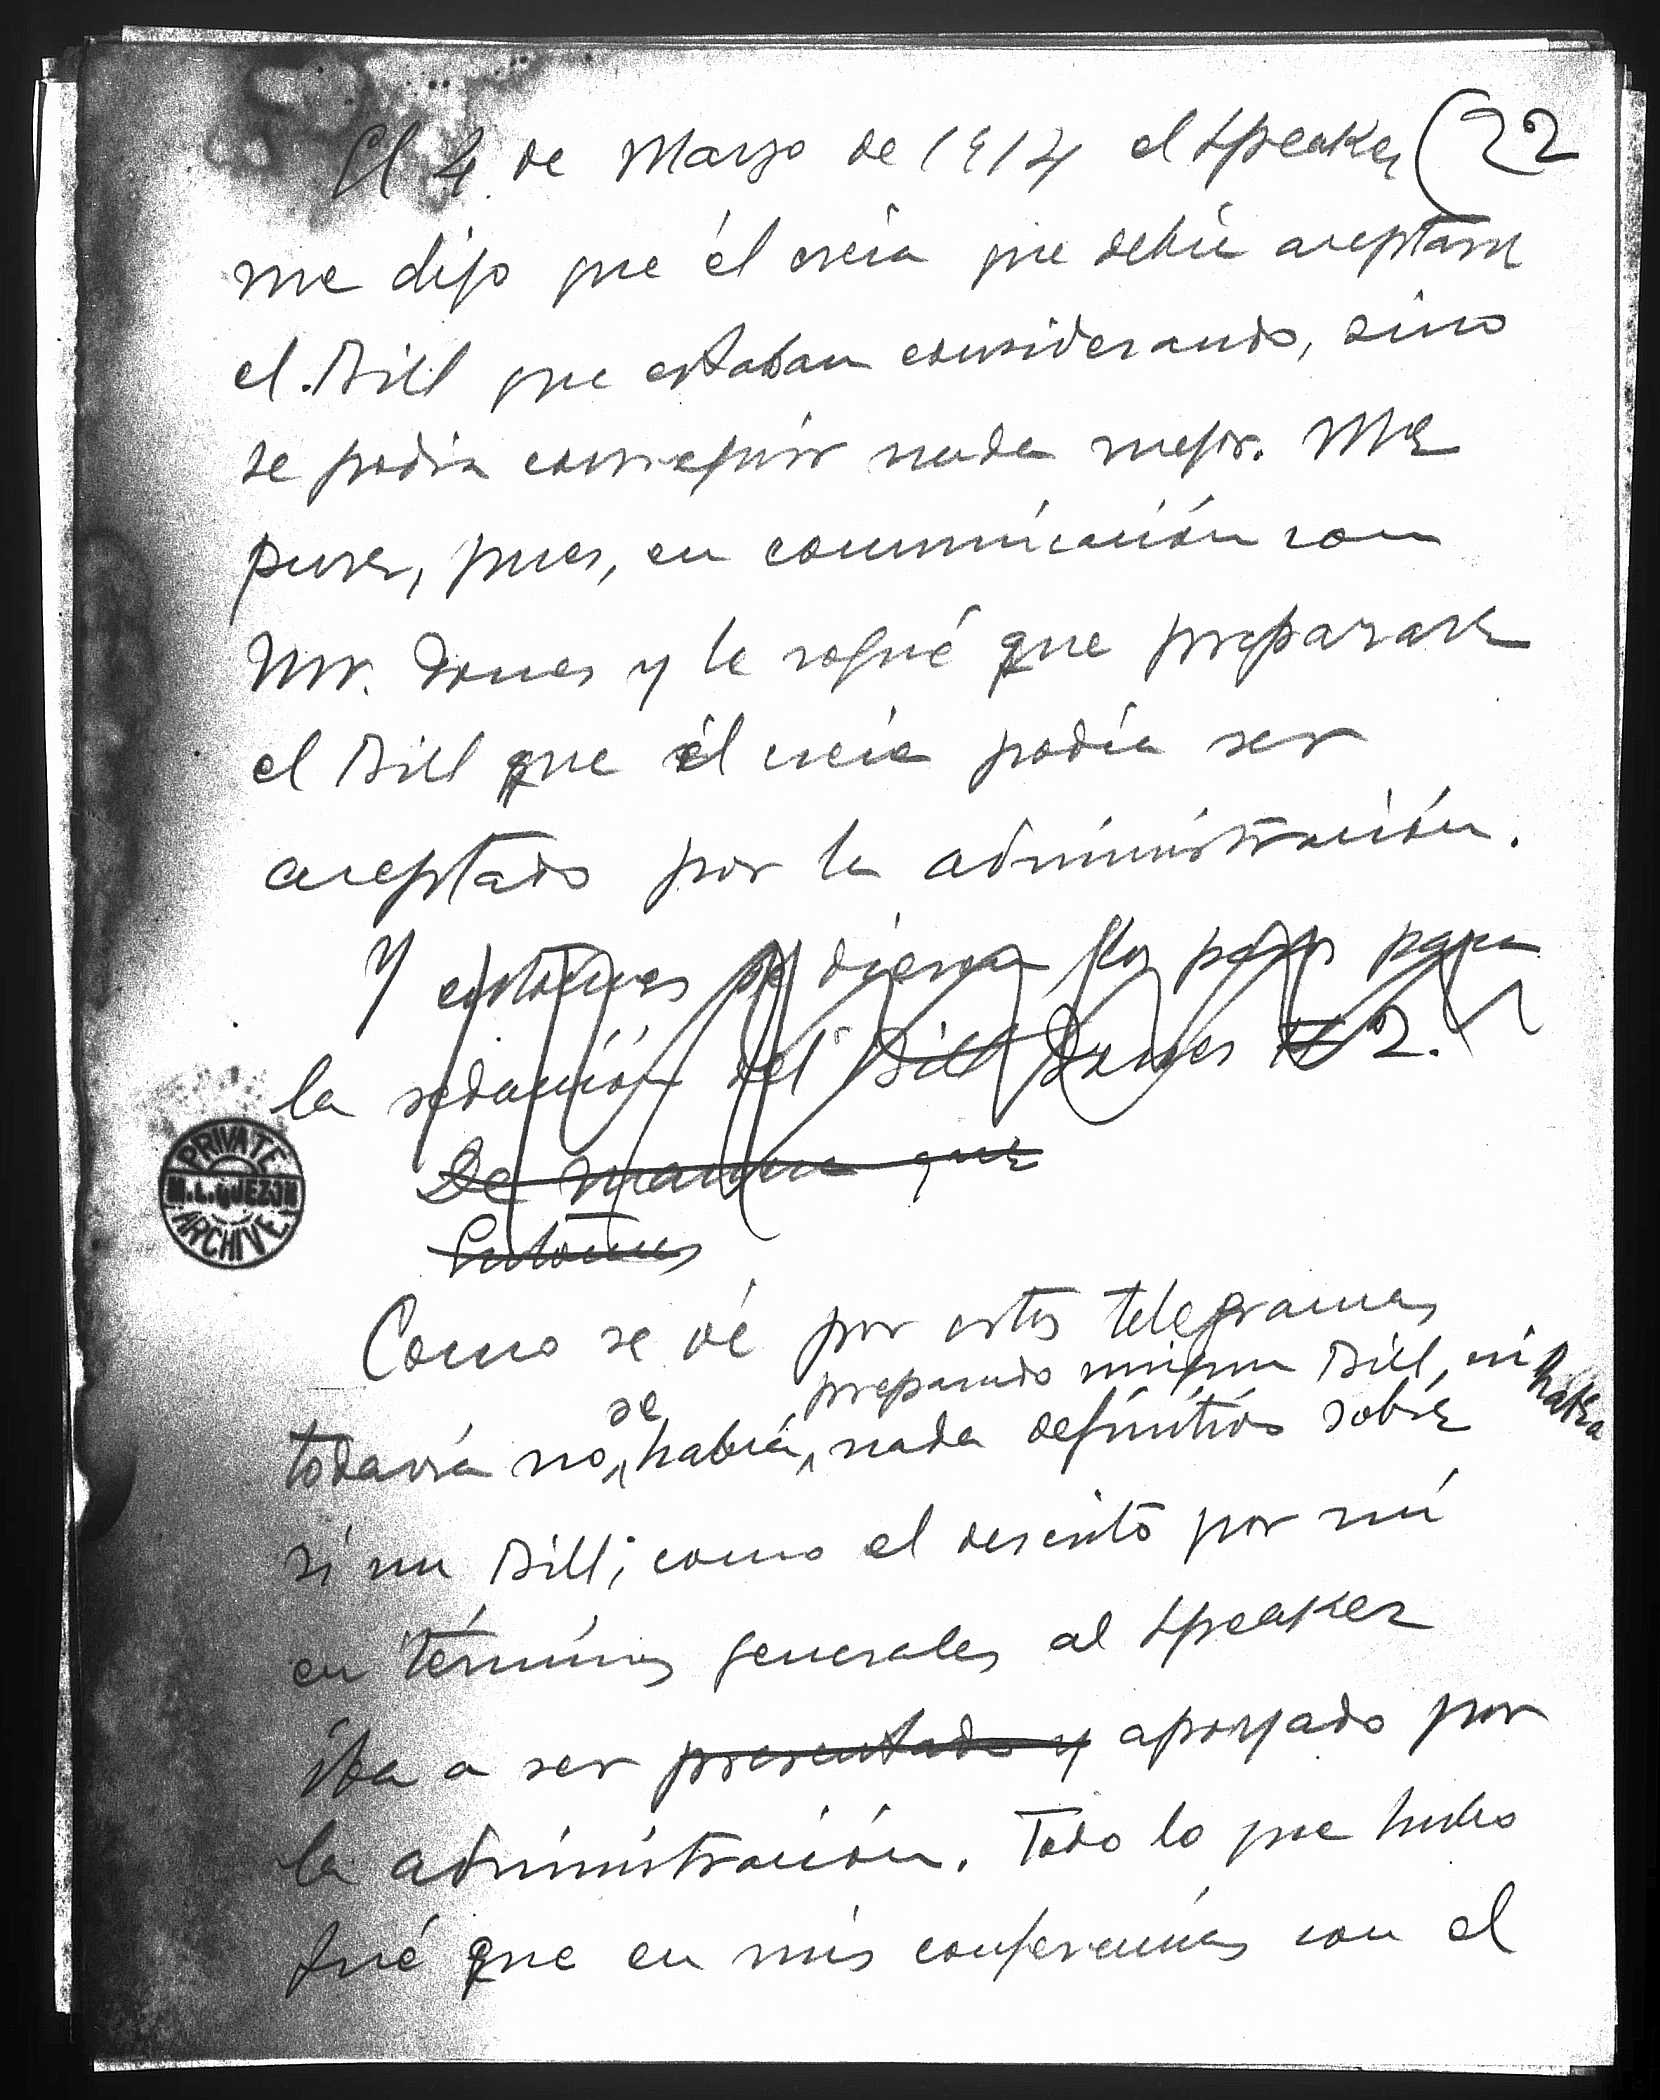 22
El 4 de Marzo de 1914 el Speaker
me dijo que él creia que debia aceptarse
el Bill que estaban considerando, sino
se podia conseguir nada mejor. Me
puse, pues, en comunicación con
Mr. Jones y le rogué que preparase
el Bill que él creia podia ser
aceptado por la administración.
Y entonces se dieron los pasos para
la redacción del Bill Jones 2.
De manera que
Entonces
Como se vé por estos telegramas
preparado ningun Bill, ni habia
se
todavia no habia nada definitivo sobre
si un Bill, como el descrito por mí
en términos generales al Speaker
iba a ser presentado y apoyado por
la administración. Todo lo que hubo
fué que en mis conferencias con el
PRIVATE
M.L.QUEZON
ARCHIVE